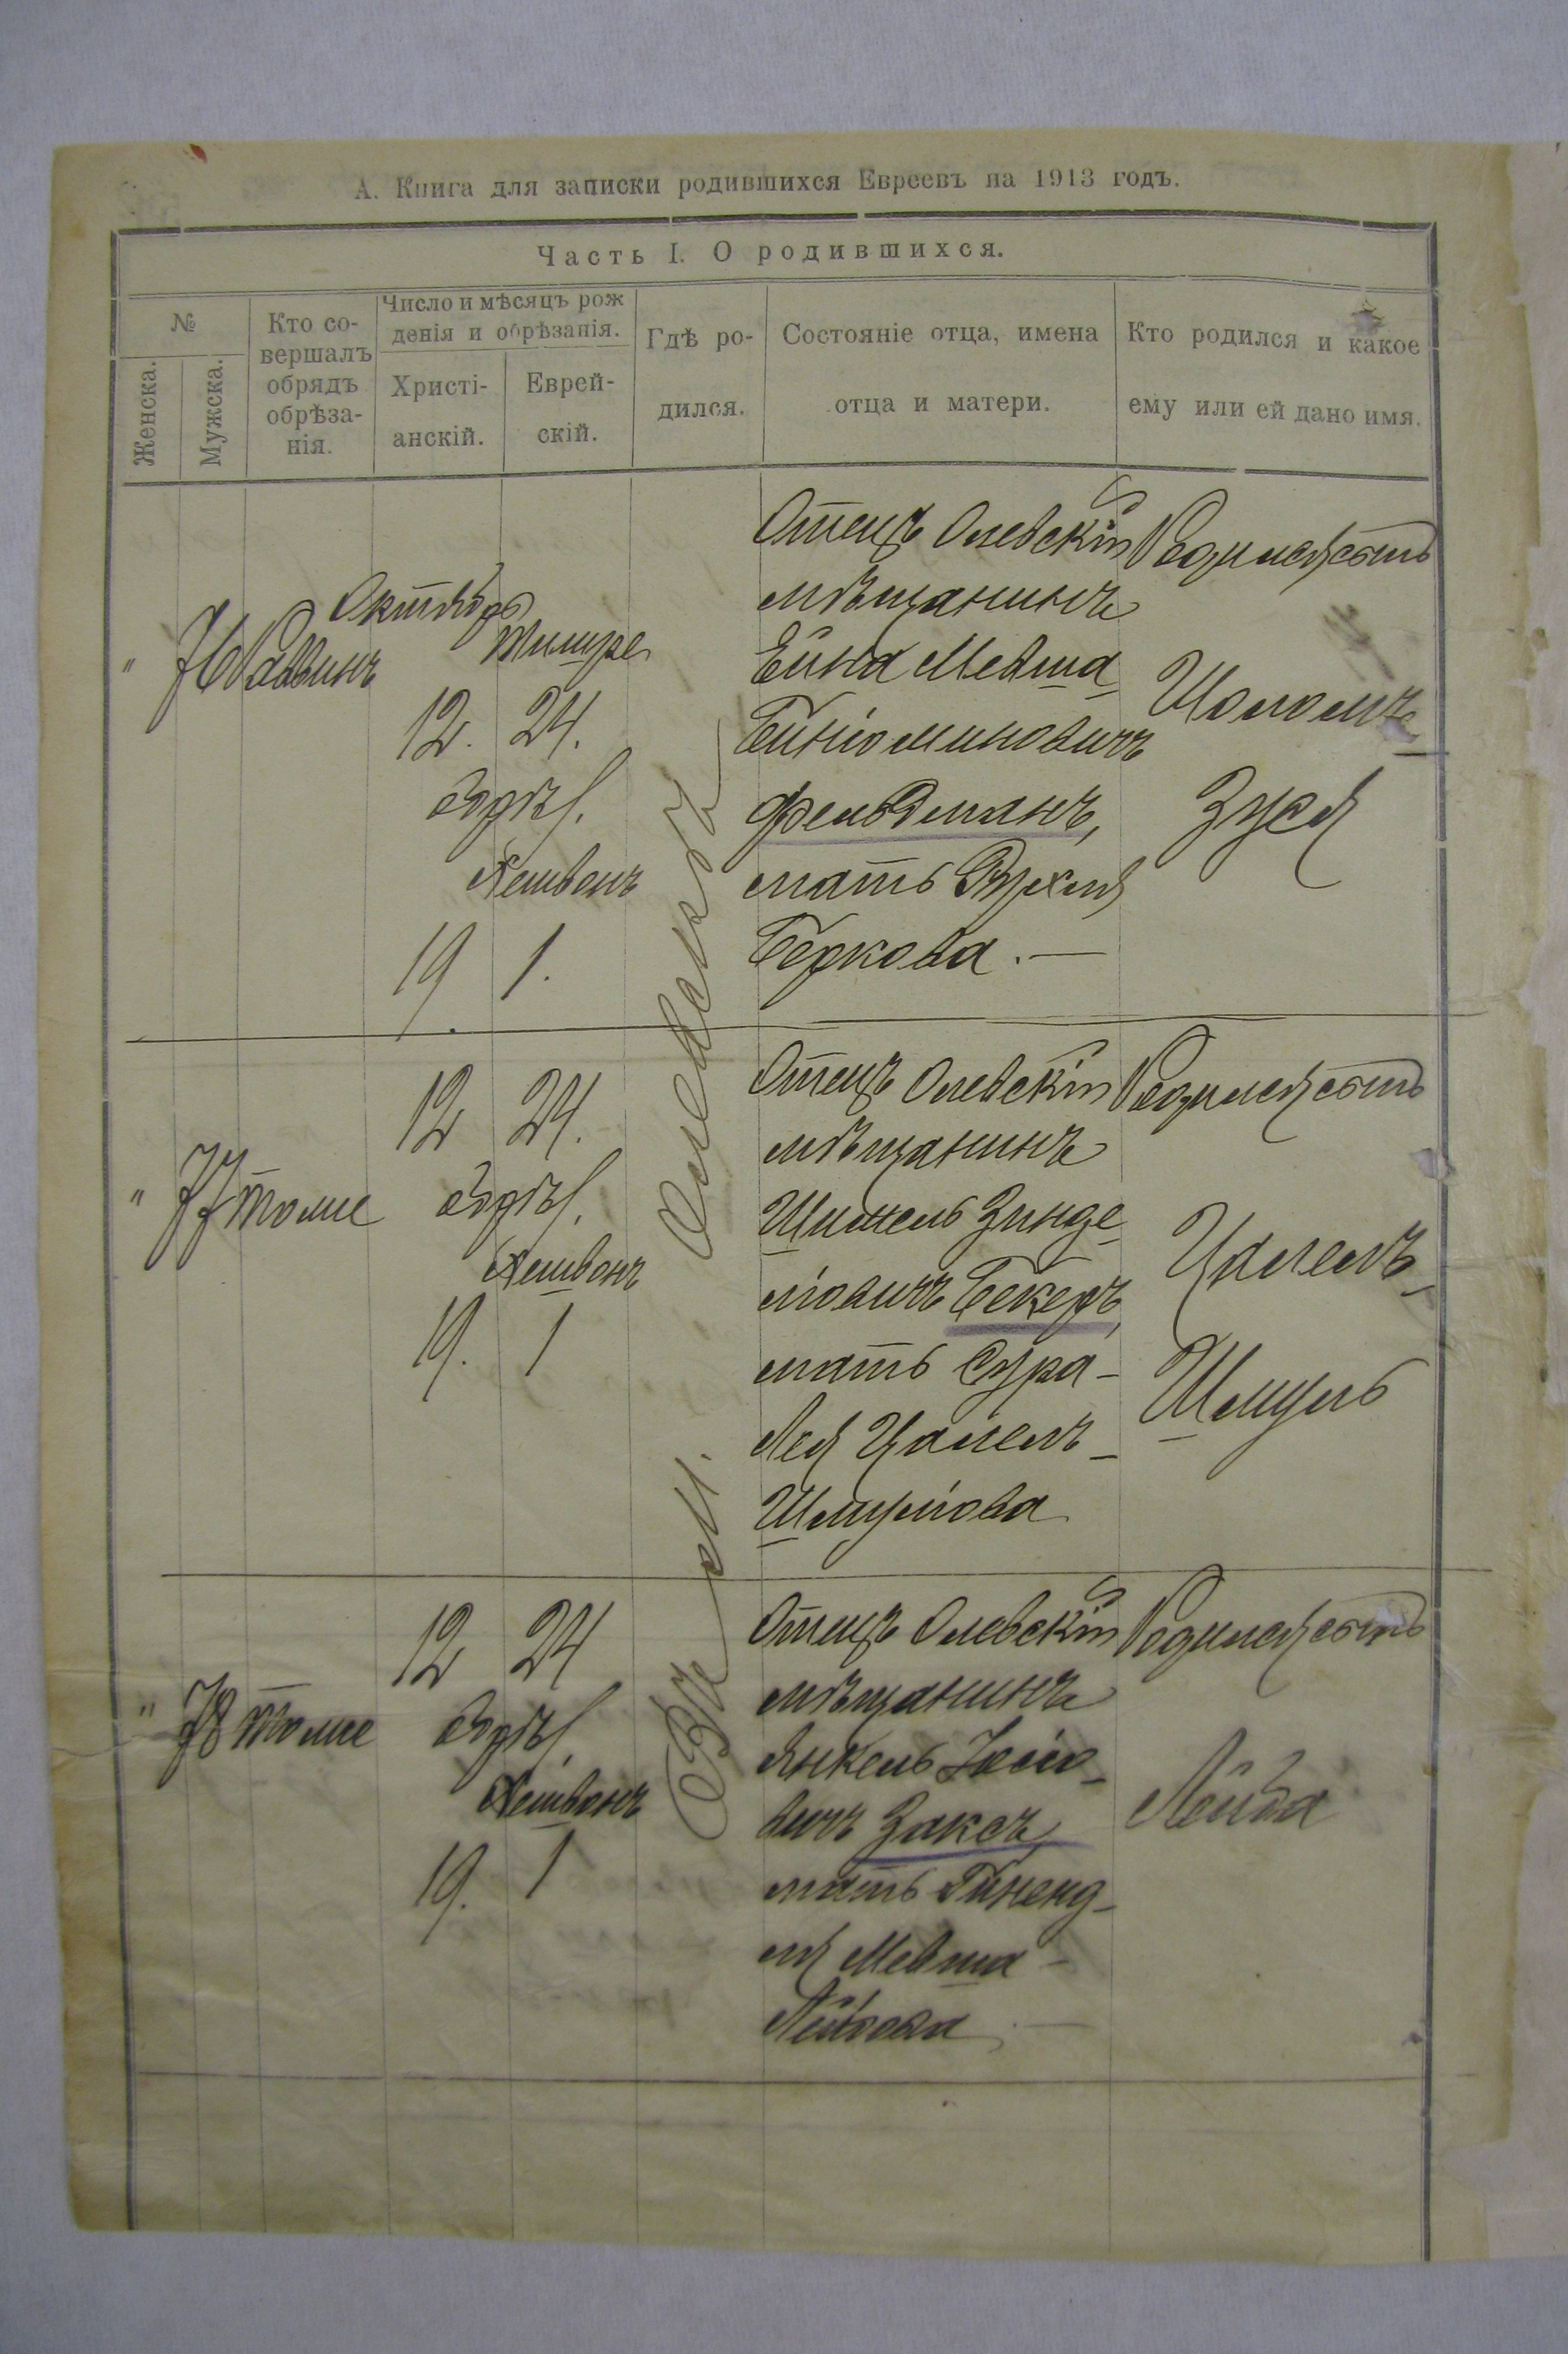 А. Книга для записки родившихся Евреевъ на 1913 годъ.
Часть I. О родившихся.
№
Женска.
Мужска.
Кто со-
вершалъ
обрядъ
обрѣза-
нія.
Число и мѣсяцъ рож
денія и обрѣзанія.
Христі-
анскій.
Еврей-
скій.
Гдѣ ро-
дился.
Состояніе отца, имена
отца и матери.
Кто родился и какое
ему или ей дано имя.
" 76 Раввинъ
Октябрь
Тишре
12. 24.
обрѣз.
Хешвонъ
19. 1.
Въ м. Олевскѣ
Отецъ Олевскій
мѣщанинъ
Ейна Мевша
Бейніоминовичъ
Фельдманъ,
мать Рухля
Беркова. —
Родился сынъ
Шоломъ-
Зуся
" 77 тоже
12 24.
обрѣз.
Хешвонъ
19. 1
Отецъ Олевскій
мѣщанинъ
Шижель Зинде-
лiовичъ Бекеръ,
мать Сура-
Лея Цалелъ-
Шмулiова
Родился сынъ
Цалелъ-
Шмуль
" 78 тоже
12 24
обрѣз.
Хешвонъ
19. 1
Отецъ Олевскій
мѣщанинъ
Янкель Іосіо-
вичъ Заксъ,
мать Гиненд-
ля Мевша-
Лейбова. —
Родился сынъ
Лейба